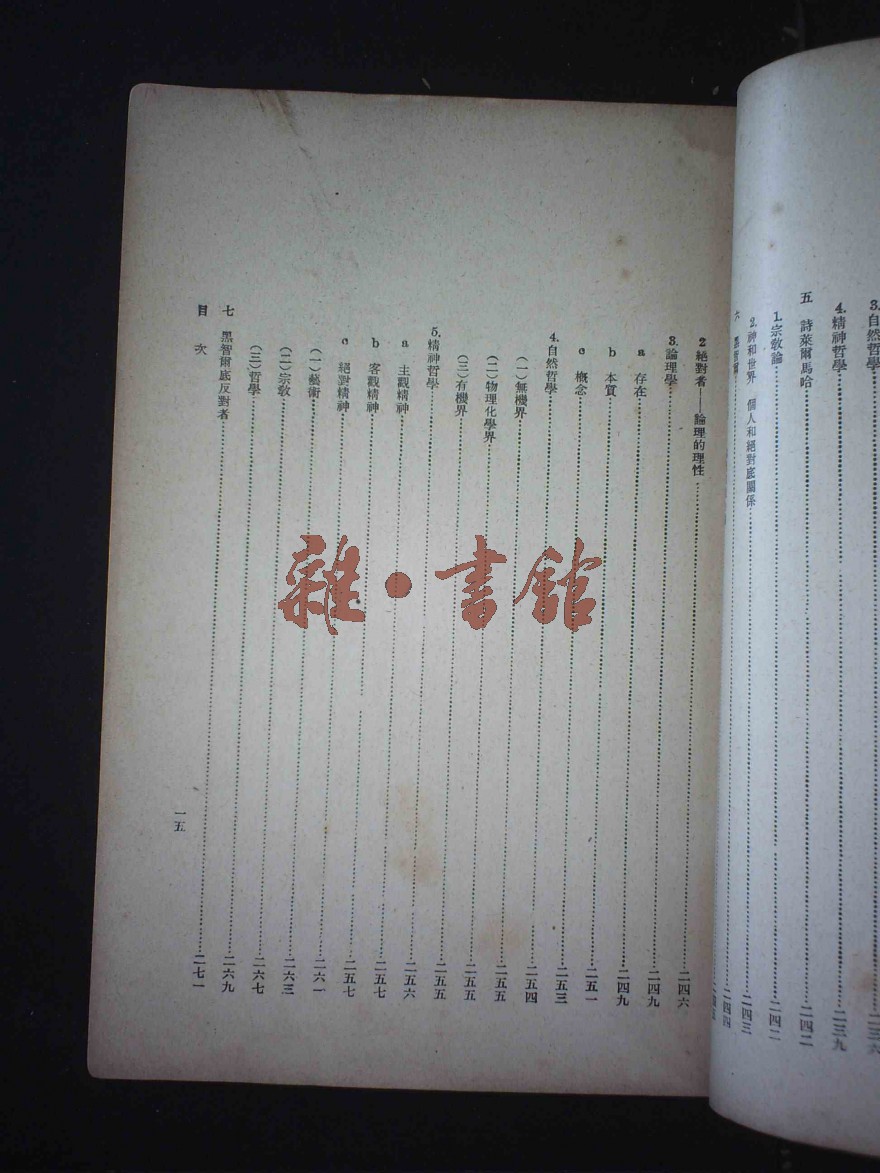 3.自然哲學……二三六
4.精神哲學……二三九
五 詩萊爾馬哈……二四二
1.宗敎論……二四二
2.神和世界 個人和絕對底關係……二四三
六 黑智爾……二四四
2 絕對者——論理的理性……二四六
3.論理學……二四九
a 存在……二四九
b 本質……二五一
c 概念……二五三
4.自然哲學……二五四
(一)無機界……二五五
(二)物理化學界……二五五
(三)有機界……二五五
5.精神哲學……二五六
a 主觀精神……二五七
b 客觀精神……二五七
c 絕對精神……二六一
(一)藝術……二六三
(二)宗敎……二六七
(三)哲學……二六九
七 黑智爾底反對者……二七一
目次
一五
雜·書館